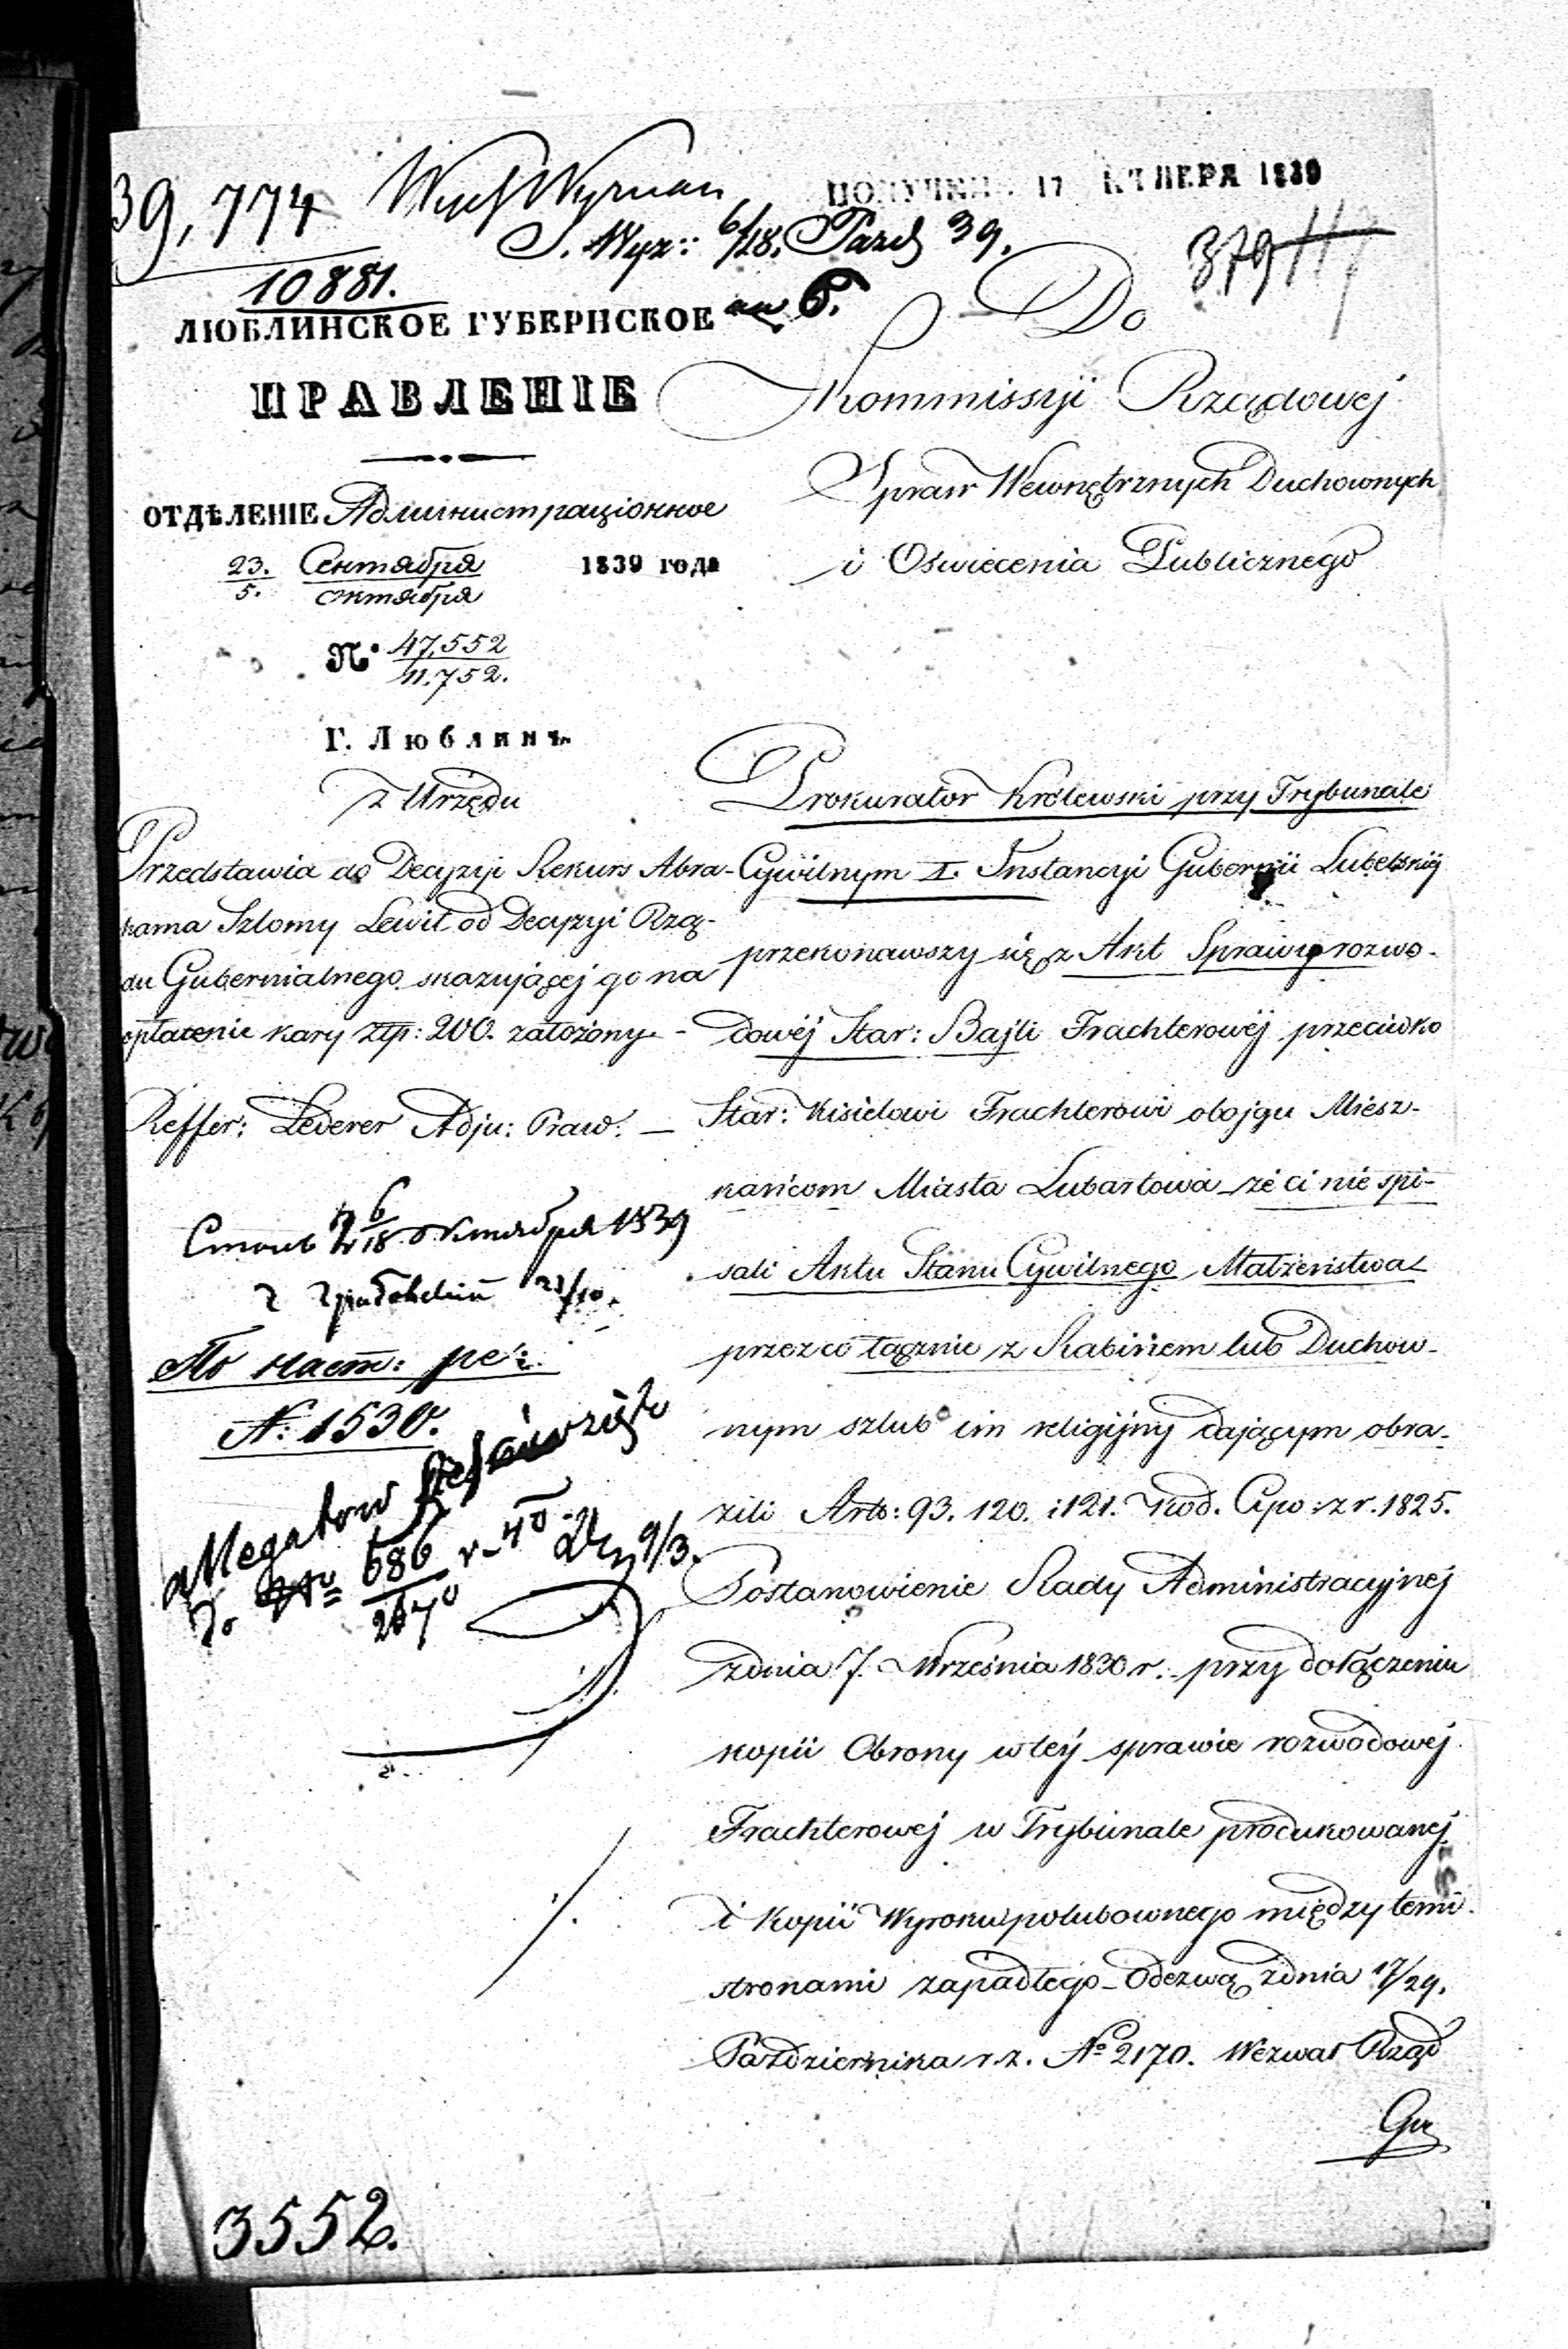 39,774
10881.
S. Wyz: 6/18. Pazd 39.
17 1839
379
ЛЮБЛИНСКОЕ ГУБЕРНСКОЕ
ПРАВЛЕНІЕ
ОТДѢЛЕНІЕ Администраціонное
23. Сентября 1839 года
5. Октября
№ 47,552
11.752.
Г. Люблинъ
z Urzędu
Przedstawia do Decyzyi Rekurs Abra-
hama Szlomy Lewit od Decyzyi Rzą-
du Gubernialnego skazującej go na
opłacenie kary złp: 200. założony -
Reffer: Lederer Adju: Praw: —
6/18 Октября 1839
По наст: ре:
N: 1530.
allegatow
do No 686 r. 40
9/3.
3552.
Do
Kommissyi Rządowej
Spraw Wewnętrznych Duchownych
i Oświecenia Publicznego
Prokurator Królewski przy Trybunale
Cywilnym I. Instancyi Gubernii Lubelskiej
przekonawszy się z Akt Sprawy rozwo-
dowéj Star: Bajli Frachterowéj przeciwko
Star: Kisielowi Frachterowi obojgu Miesz-
kańcom Miasta Lubartowa że ci nie spi-
sali Aktu Stanu Cywilnego Małżeństwa
przez co łącznie z Rabinem lub Duchow-
nym szlub im religijny dającym obra-
zili Arto: 93. 120. i 121. Kod. Cyw: z r. 1825.
Postanowienie Rady Administracyjnej
z dnia 7. Września 1830 r. przy dołączeniu
kopii Obrony w téj sprawie rozwodowej
Frachterowej w Trybunale produkowanej
i Kopii Wyroku polubownego między temi
stronami zapadłego - Odezwą z dnia 17/29.
Października r.z. No 2170. Wezwał Rząd
Gu